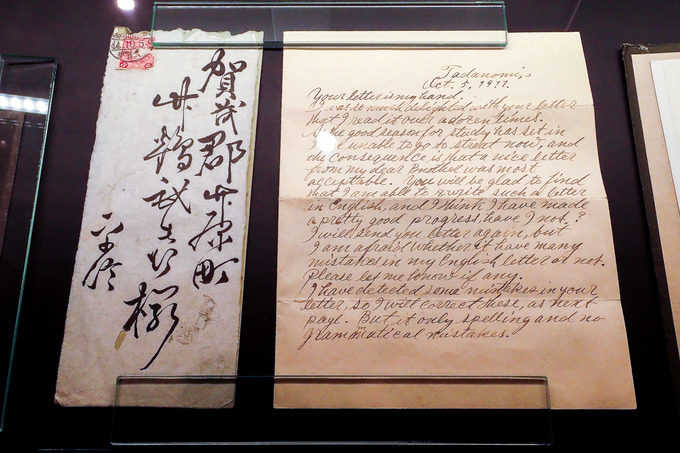 賀茂郡竹原町
竹鶴
様
Tadanomi,
Oct. 5, 1911.
Your letter is my hand.
I was so much delighted with your letter
that I read it over a dozen times.
As the good season for study has set in
I am unable to go to street now, and
the consequence is that a nice letter
from my dear Brother was most
acceptable. You will be glad to find
that I am able to write such a letter
in English, and I think I have made
a pretty good progress, have I not?
I will send you letter again, but
I am afraid whether it have many
mistakes in my English letter or not.
Please let me know if any.
I have detected some mistakes in your
letter, so I will correct these, as next
page. But it only spelling and no
grammatical mistakes.